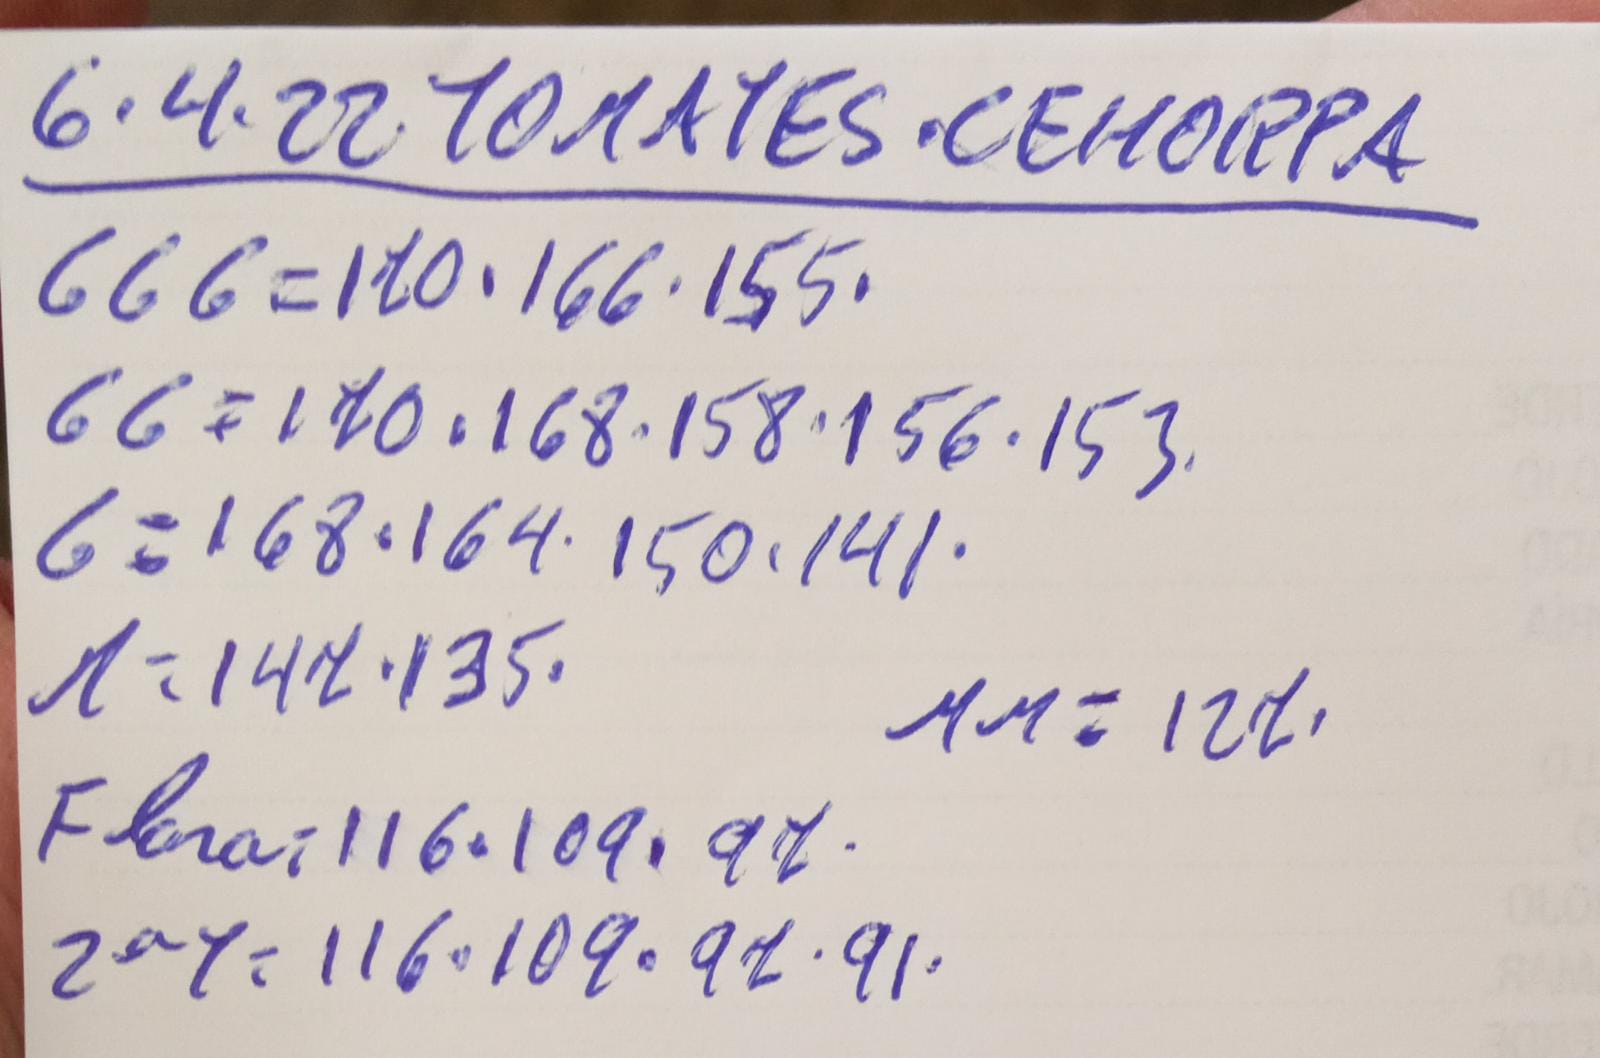 6.4.22 TOMATES.CEHORPA
GGG=170.166.155.
GG=170.168.158.156.153.
G=168.164.150.141.
M=147.135.
MM=127.
Flora=116.109.97.
2ªT=116.109.97.91.